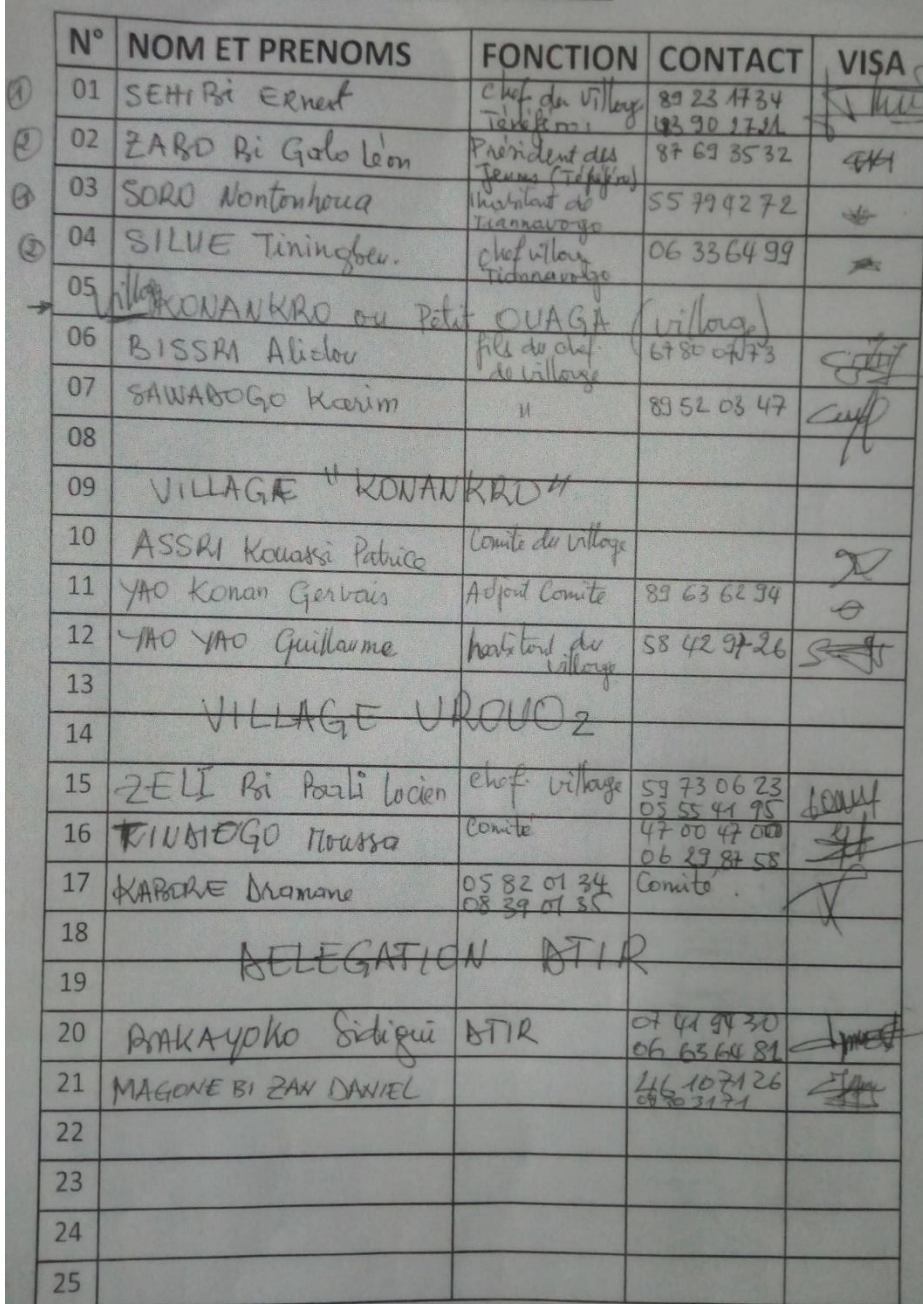 N° NOM ET PRENOMS FONCTION CONTACT VISA
① 01 SEHI Bi ERnest Chef du Village 89 23 17 34
② 02 ZABO Bi Golo Léon Président des 87 69 35 32
Jeunes
03 SORO Nontonhoua habitant de 55 79 42 72
Tiannavogo
② 04 SILUE Tiningbeu. chef village 06 33 64 99
05 Village KONANKRO ou Petit OUAGA (village)
06 BISSRI Alidou fils du chef 67 80 07 73
de village
07 SAWADOGO Karim " 89 52 03 47
08
09 VILLAGE "KONANKRO"
10 ASSRI Kouassi Patrice Comite du village
11 YAO Konan Gervais Adjoint Comite 89 63 62 94
12 YAO YAO Guillaume du 58 42 97 26
village
13
VILLAGE UROUO2
14
15 ZELI Bi Locien chef village 59 73 06 23
05 55 41 95
16 KINDIEGO Moussa Comité 47 00 47 00
06 29 87 58
17 KABORE Dramane 05 82 01 34 Comité.
08 39 01 35
18
DELEGATION DTIR
19
20 BAKAYOKO Sidiqui DTIR 07 41 94 30
06 63 64 81
21 MAGONE BI ZAN DANIEL 46 10 71 26
22
23
24
25